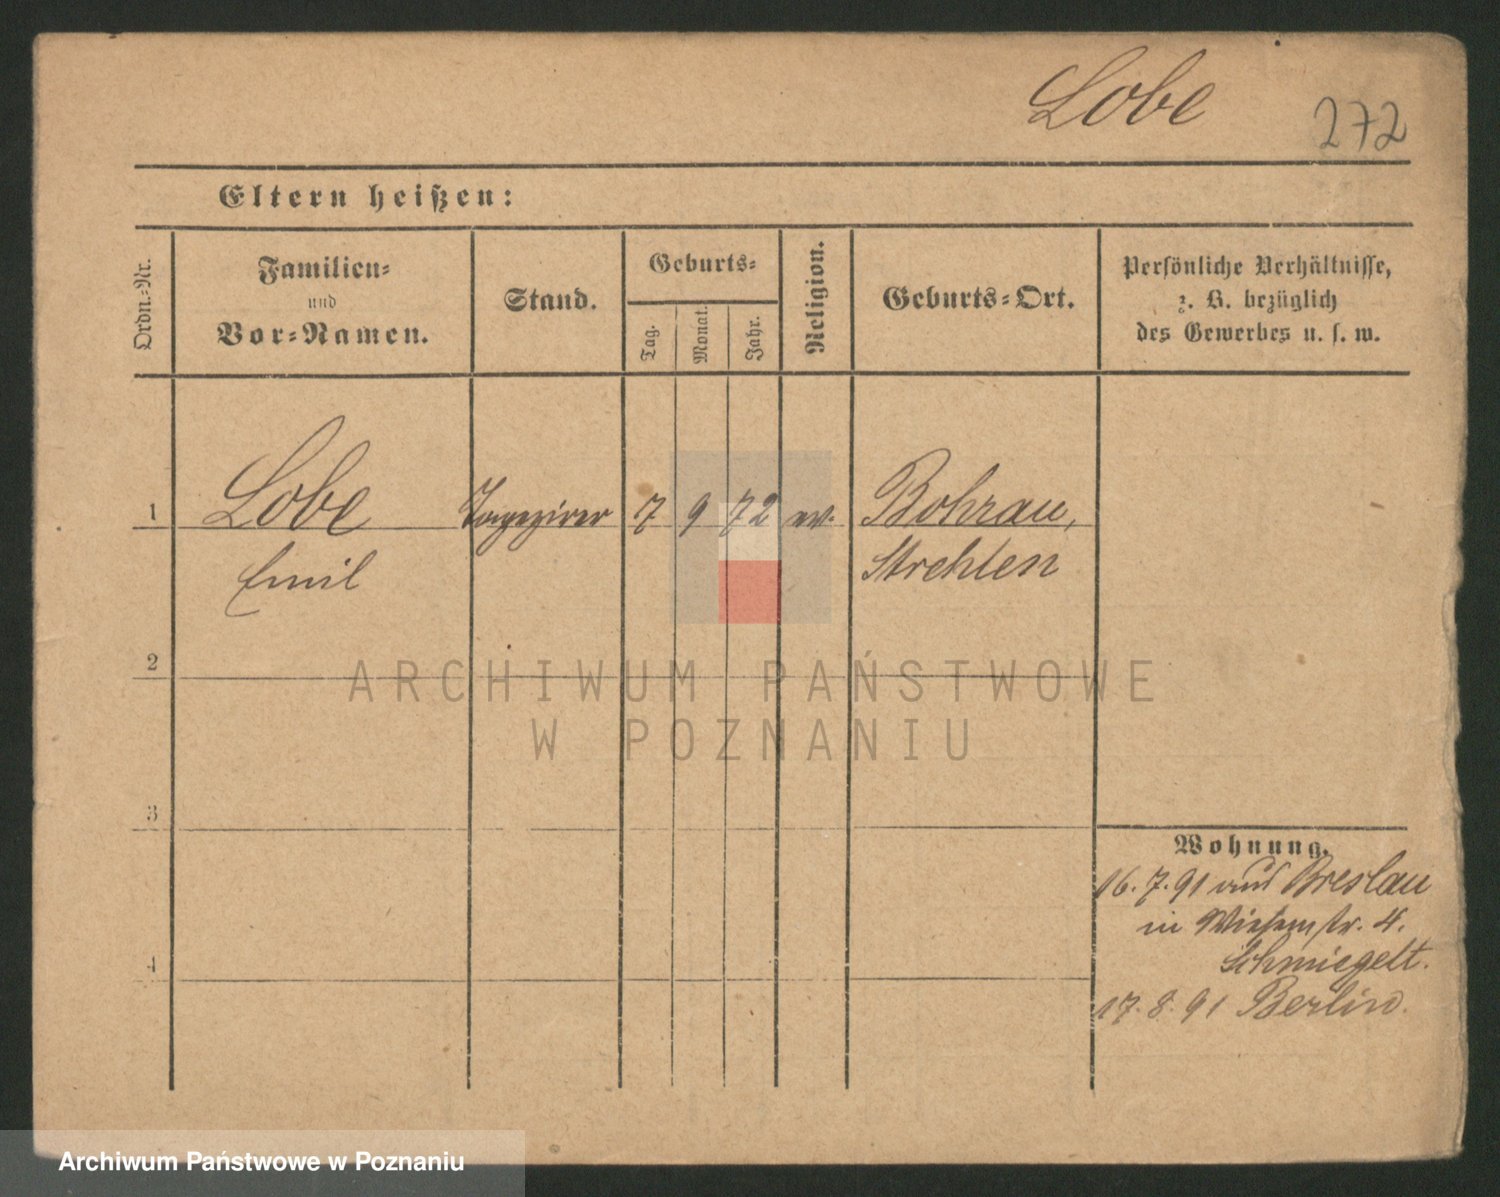 Lobe
272
Eltern heißen:
Ordn.-Nr.
Familien-
und
Vor-Namen.
Stand.
Geburts-
Tag.
Monat.
Jahr.
Religion.
Geburts-Ort.
Persönliche Verhältnisse,
z. B. bezüglich
des Gewerbes u. s. w.
1 Lobe Tapezirer 7 9 72 ev. Bohrau,
Emil Strehlen
2
3
4
Wohnung.
16. 7. 91 aus Breslau
in Wiesenstr. 4.
Schmiegelt.
17. 8. 91 Berlin.
ARCHIWUM PAŃSTWOWE
W POZNANIU
Archiwum Państwowe w Poznaniu